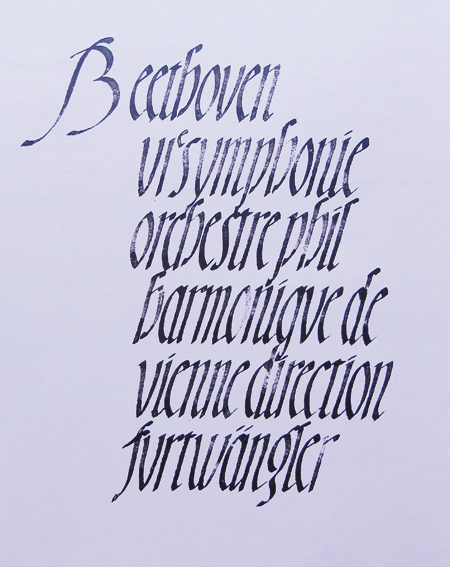 Beethoven
VIe symphonie
orchestre phil
harmonique de
vienne direction
furtwängler